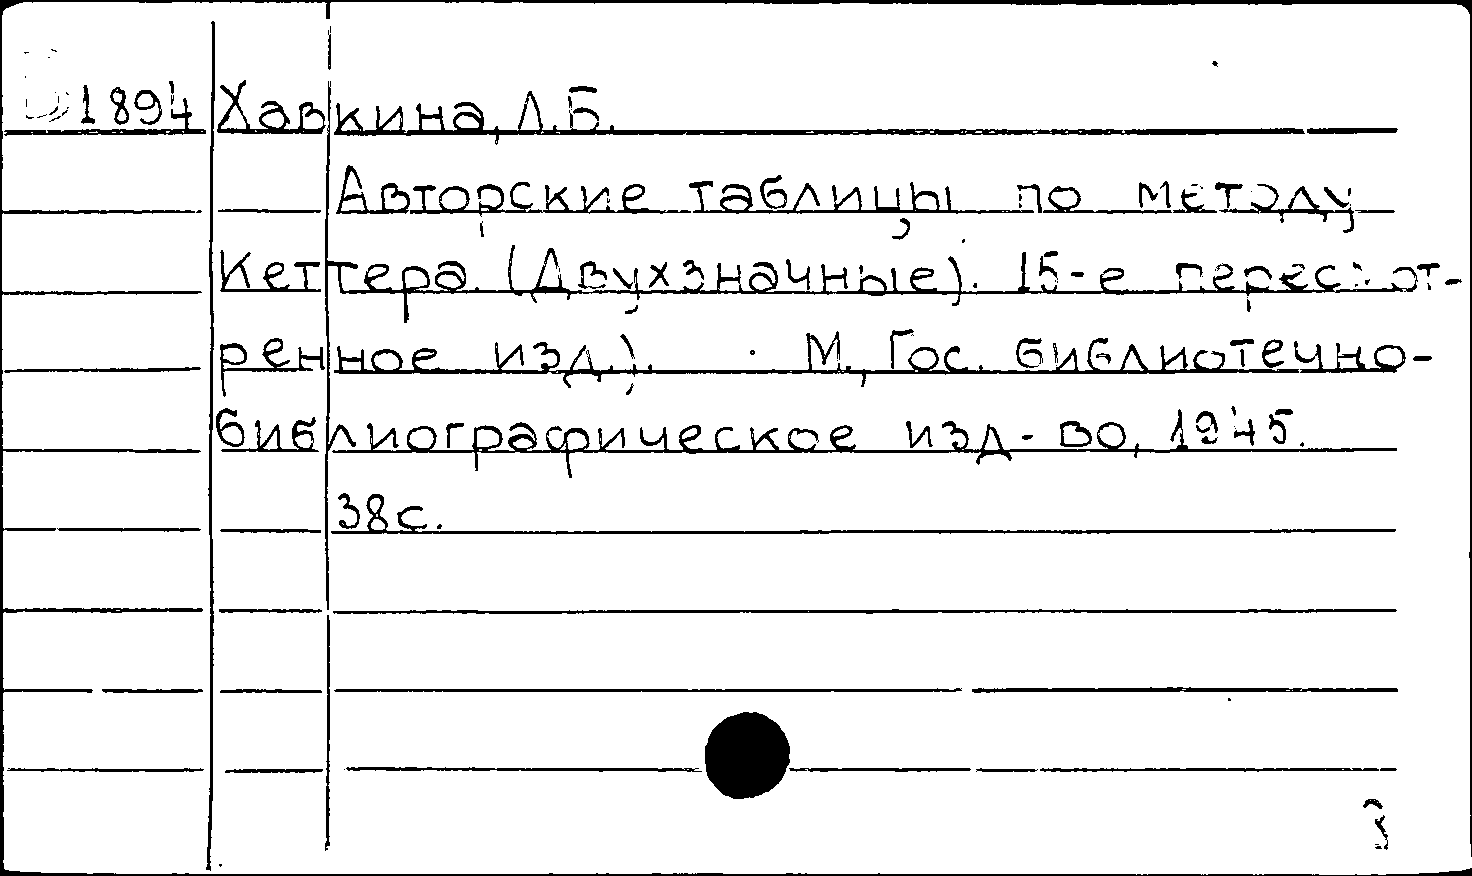 В1894 Хавкина, Л.Б.
Авторские таблицы по методу
Кеттера. (Двухзначные). 15-е пересмот-
ренное изд.). М., Гос. библиотечно-
библиографическое изд-во, 1945.
38с.
3